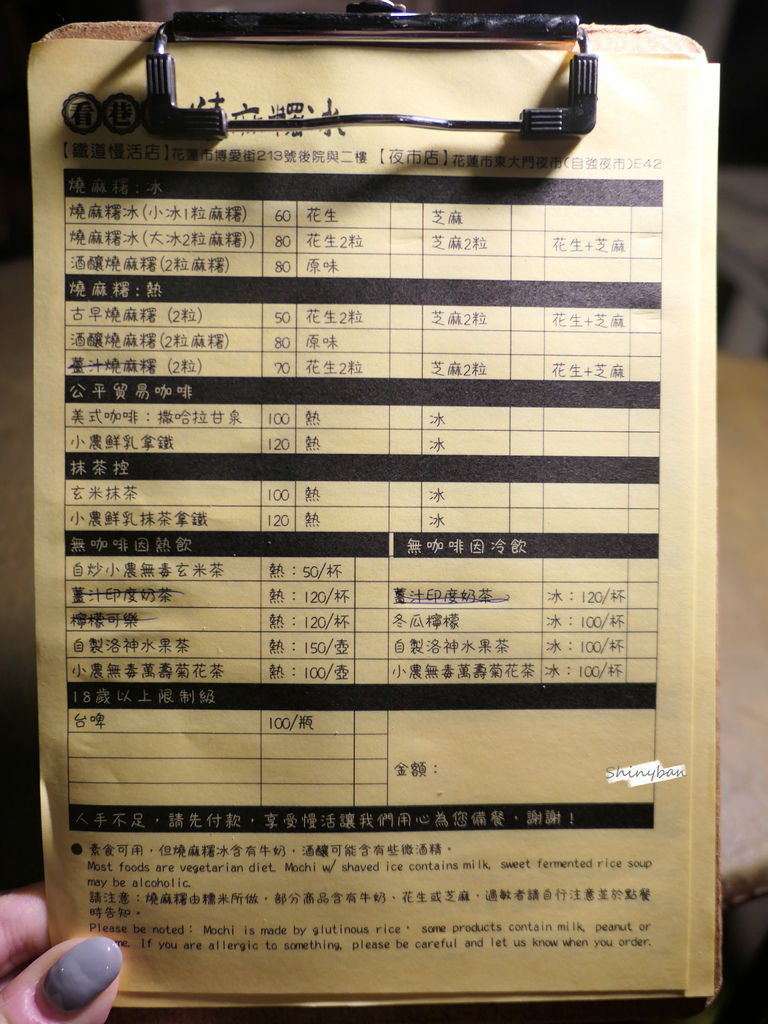 看巷 燒麻糬冰
【鐵道慢活店】花蓮市博愛街213號後院與二樓 【夜市店】花蓮市東大門夜市(自強夜市)E42
燒麻糬:冰
燒麻糬冰(小冰1粒麻糬) 60 花生 芝麻
燒麻糬冰(大冰2粒麻糬)) 80 花生2粒 芝麻2粒 花生+芝麻
酒釀燒麻糬(2粒麻糬) 80 原味
燒麻糬:熱
古早燒麻糬 (2粒) 50 花生2粒 芝麻2粒 花生+芝麻
酒釀燒麻糬(2粒麻糬) 80 原味
薑汁燒麻糬 (2粒) 70 花生2粒 芝麻2粒 花生+芝麻
公平貿易咖啡
美式咖啡:撒哈拉甘泉 100 熱 冰
小農鮮乳拿鐵 120 熱 冰
抹茶控
玄米抹茶 100 熱 冰
小農鮮乳抹茶拿鐵 120 熱 冰
無咖啡因熱飲 無咖啡因冷飲
自炒小農無毒玄米茶 熱:50/杯
薑汁印度奶茶 熱:120/杯 薑汁印度奶茶 冰:120/杯
檸檬可樂 熱:120/杯 冬瓜檸檬 冰:100/杯
自製洛神水果茶 熱:150/壺 自製洛神水果茶 冰:100/杯
小農無毒萬壽菊花茶 熱:100/壺 小農無毒萬壽菊花茶 冰:100/杯
18歲以上限制級
台啤 100/瓶
金額:
Shinyban
人手不足,請先付款,享受慢活讓我們用心為您備餐,謝謝!
● 素食可用,但燒麻糬冰含有牛奶,酒釀可能含有些微酒精。
Most foods are vegetarian diet. Mochi w/ shaved ice contains milk, sweet fermented rice soup
may be alcoholic.
請注意:燒麻糬由糯米所做,部分商品含有牛奶、花生或芝麻,過敏者請自行注意並於點餐
時告知。
Please be noted: Mochi is made by glutinous rice, some products contain milk, peanut or
me. If you are allergic to something, please be careful and let us know when you order.